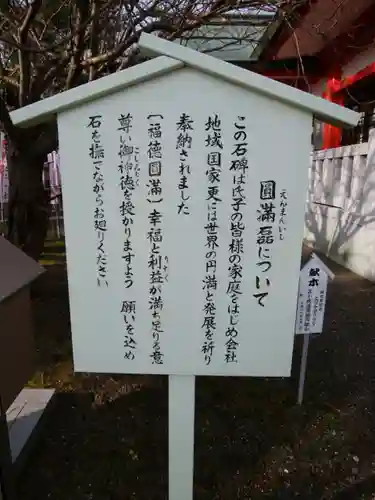 圓滿磊について
えんまんいし
この石碑は氏子の皆様の家庭をはじめ会社
地域国家更には世界の円満と発展を祈り
奉納されました
【福德圓滿】幸福と利益が満ち足りる意
りやく
尊い御神徳を授かりますよう 願いを込め
ごしんとく
石を撫でながらお廻りください
献木